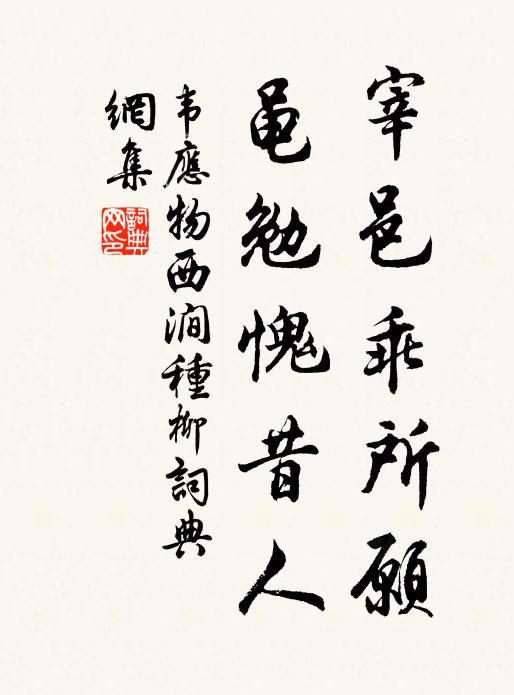 宰邑乖所願
黽勉愧昔人
韦應物西澗種柳詞典
網集
詞典
网印